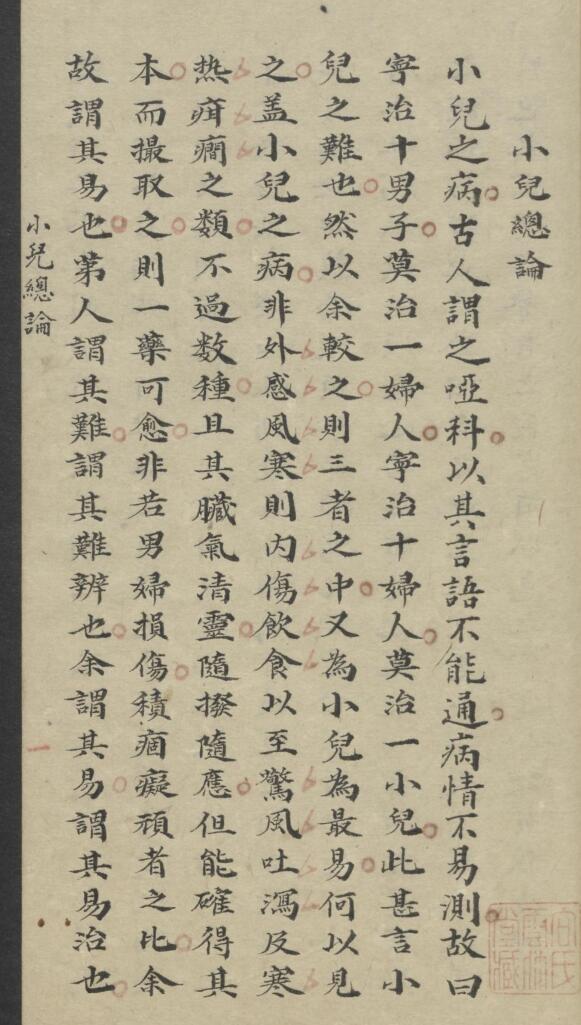 小兒總論
小兒之病古人謂之啞科以其言語不能通病情不易測故曰
寧治十男子莫治一婦人寧治十婦人莫治一小兒此甚言小
兒之難也然以余較之則三者之中又為小兒為最易何以見
之盖小兒之病非外感風寒則内傷飲食以至驚風吐瀉及寒
热疳癎之類不過数種且其臟氣清靈隨撥隨應但能確得其
本而撮取之則一藥可愈非若男婦損傷積痼癡頑者之比余
故謂其易也第人謂其難謂其難辨也余謂其易謂其易治也
小兒總論